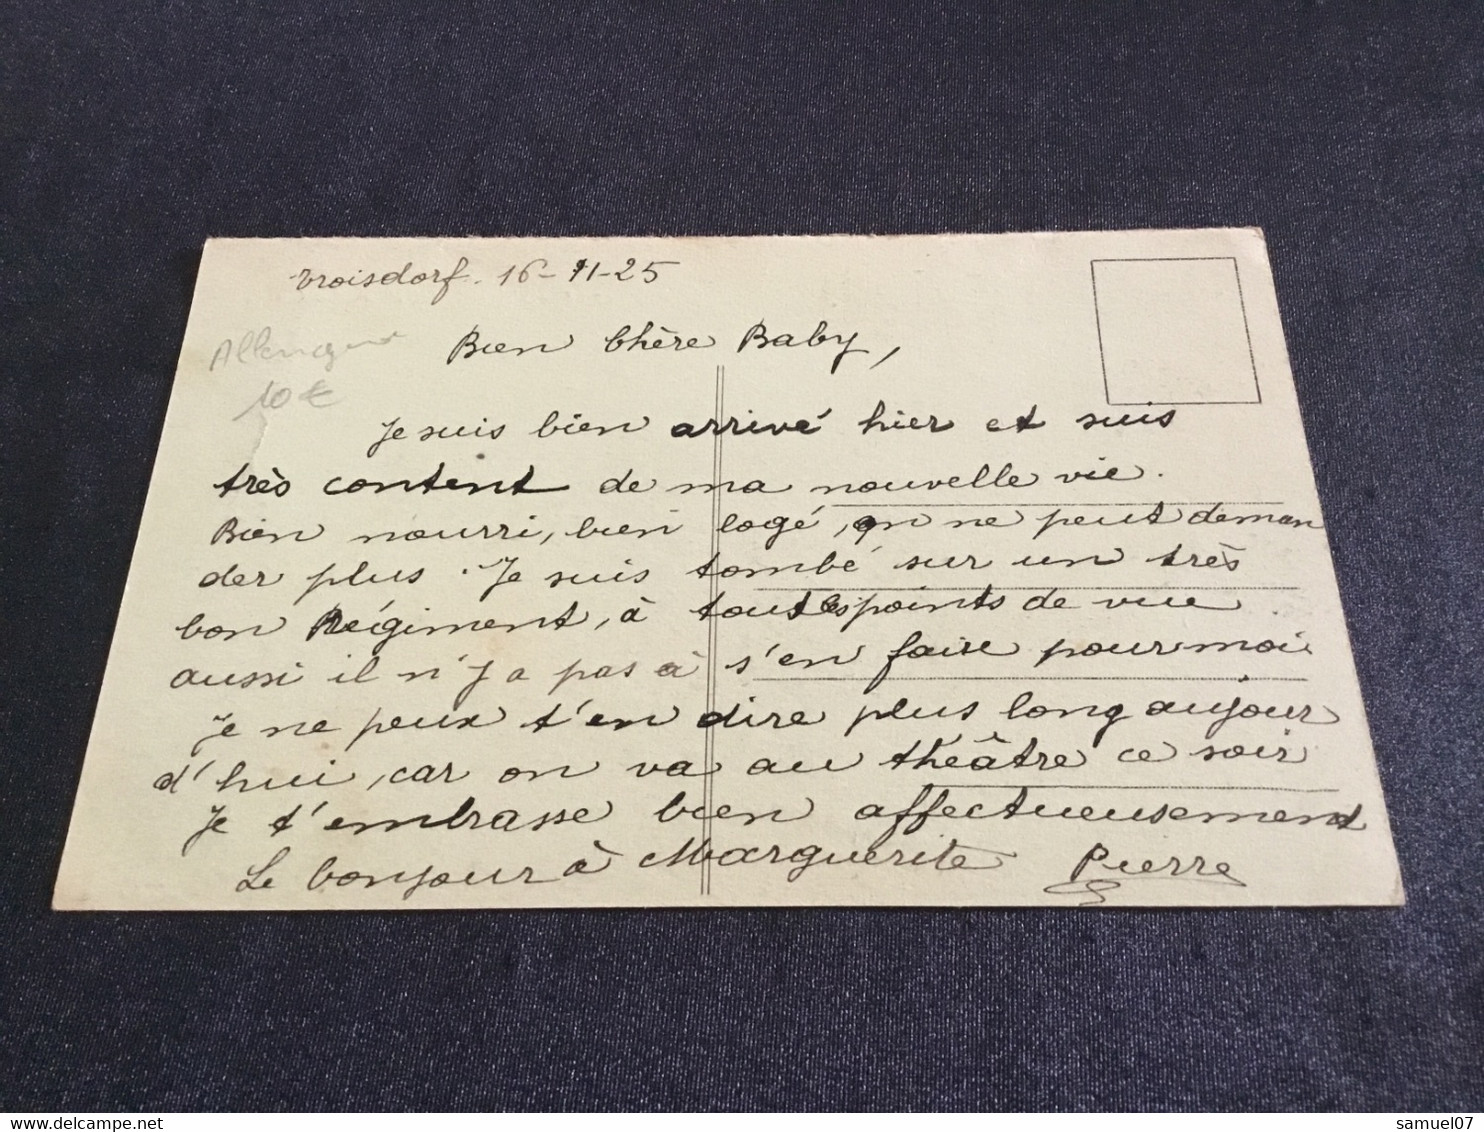 Troisdorf. 16-11-25
Allemagne
10 €
Bien Chère Baby,
Je suis bien arrivé hier et suis
très content de ma nouvelle vie.
Bien nourri, bien logé, on ne peut deman
der plus. Je suis tombé sur un très
bon Régiment, à tout les points de vue
aussi il n'y a pas à s'en faire pour moi.
Je ne peux t'en dire plus long aujour
d'hui, car on va au théâtre ce soir
Je t'embrasse bien affectueusement
Le bonjour à Marguerite Pierre
samuel07